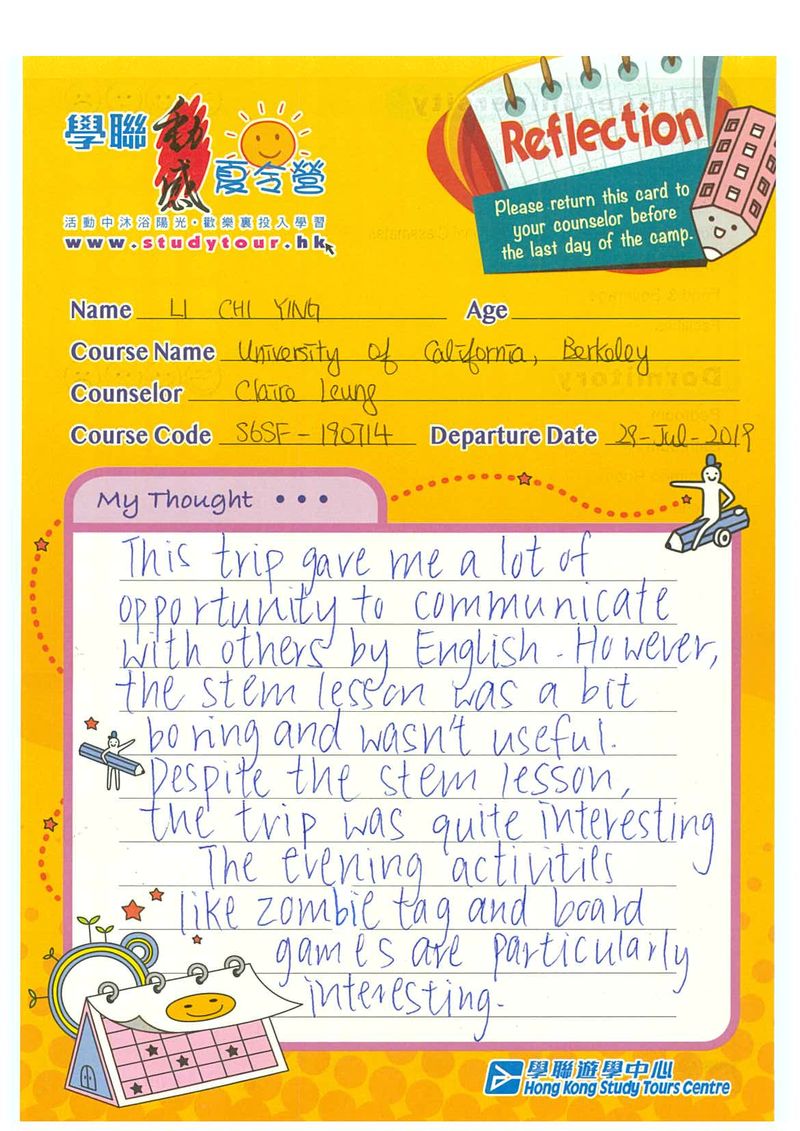 學聯 動感 夏令營
活動中沐浴陽光·歡樂裏投入學習
www.studytour.hk
Reflection
Please return this card to
your counselor before
the last day of the camp.
Name LI CHI YING Age
Course Name University of California, Berkeley
Counselor Claire Leung
Course Code S6SF-190714 Departure Date 28-Jul-2019
My Thought • • •
This trip gave me a lot of
opportunity to communicate
with others by English. However,
the stem lesson was a bit
boring and wasn't useful.
Despite the stem lesson,
the trip was quite interesting
The evening activities
like zombie tag and board
games are particularly
interesting.
學聯遊學中心
Hong Kong Study Tours Centre